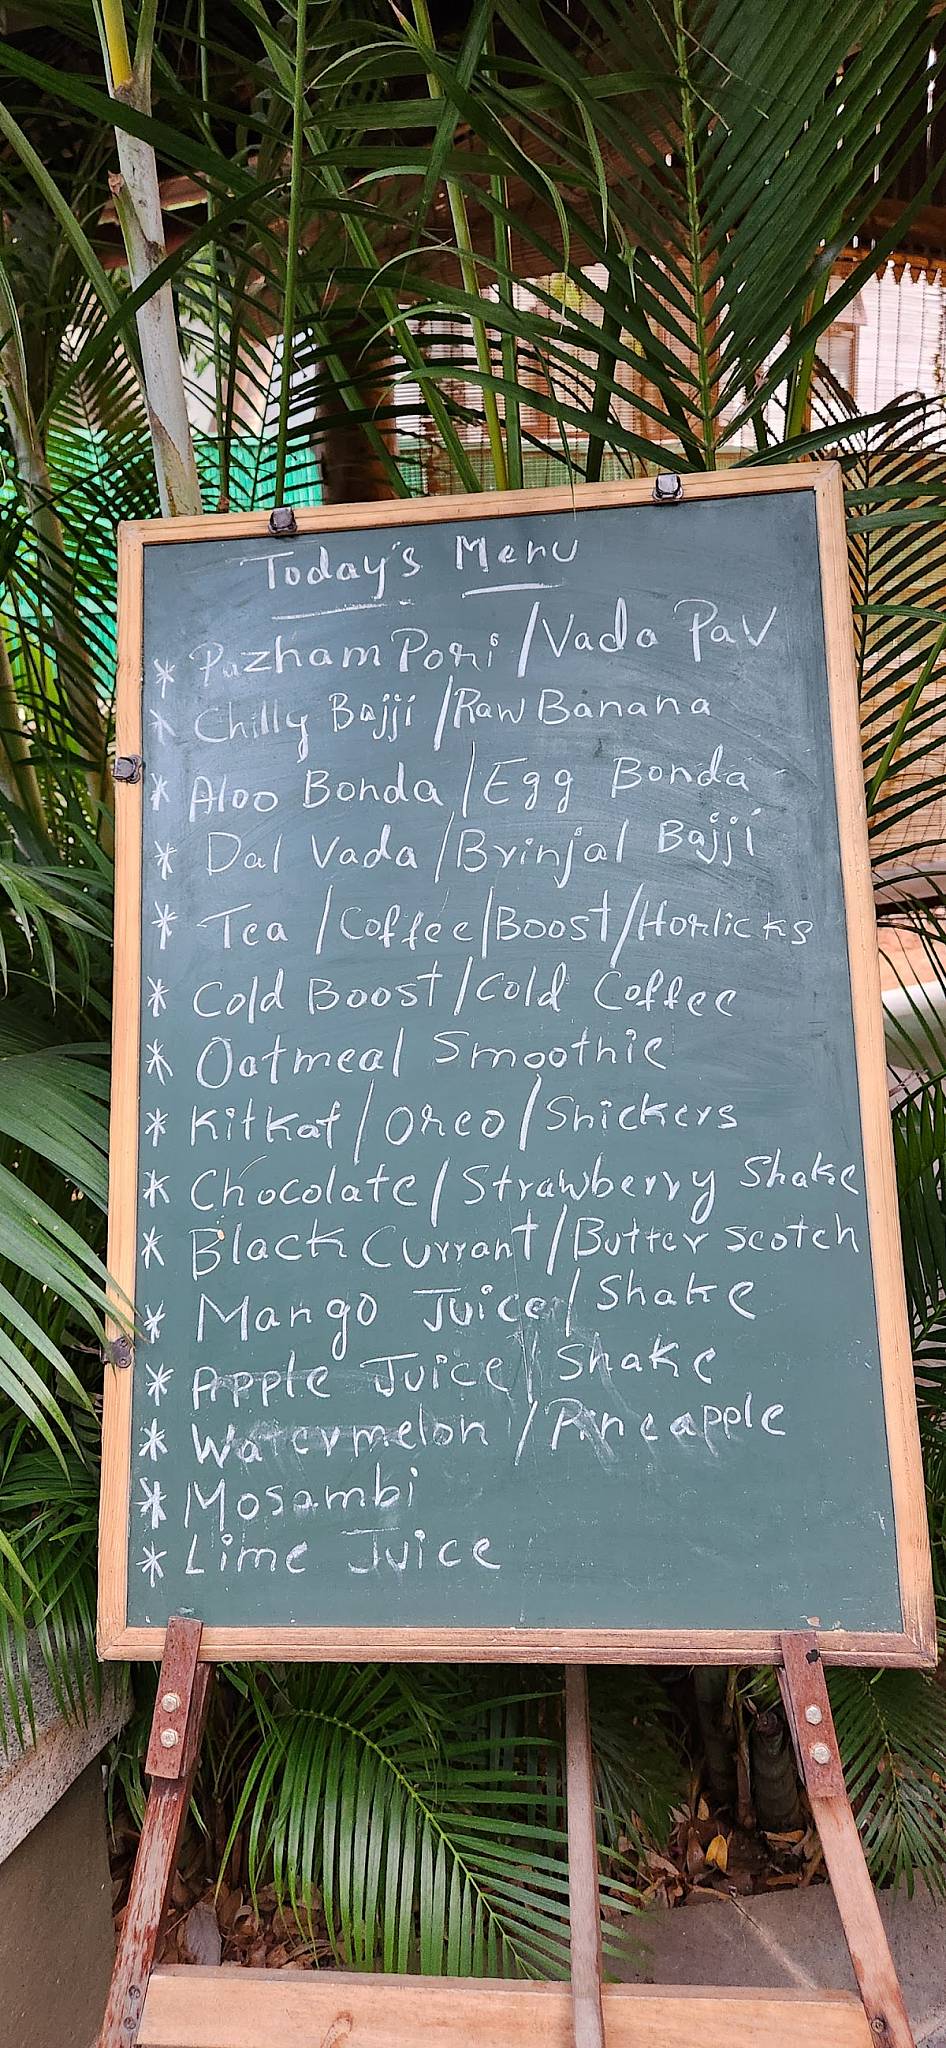 Today's Menu
* Pazham Pori / Vada Pav
* Chilly Bajji / Raw Banana
* Aloo Bonda / Egg Bonda
* Dal Vada / Brinjal Bajji
* Tea / Coffee / Boost / Horlicks
* Cold Boost / Cold Coffee
* Oatmeal Smoothie
* Kitkat / Oreo / Snickers
* Chocolate / Strawberry Shake
* Black Currant / Butter scotch
* Mango Juice / Shake
* Apple Juice / Shake
* Watermelon / Pineapple
* Mosambi
* Lime Juice